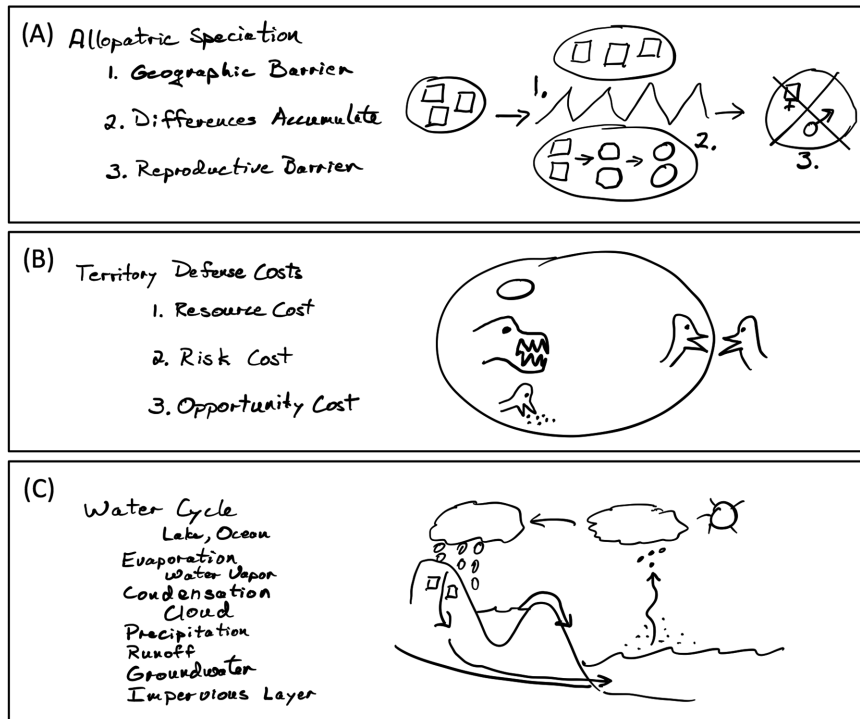 (A) Allopatric Speciation
1. Geographic Barrier
2. Differences Accumulate
3. Reproductive Barrier
1.
2.
3.
(B)
Territory Defense Costs
1. Resource Cost
2. Risk Cost
3. Opportunity Cost
(C)
Water Cycle
Lake, Ocean
Evaporation
Water Vapor
Condensation
Cloud
Precipitation
Runoff
Groundwater
Impervious Layer